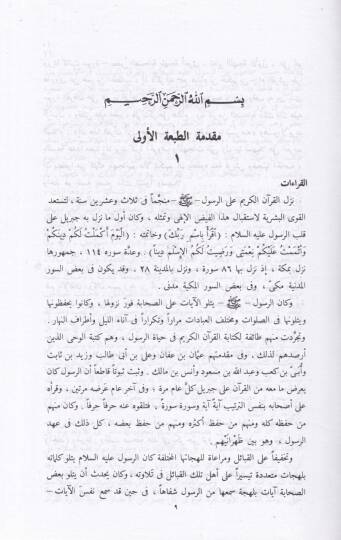 بسم الله الرحمن الرحيم
مقدمة الطبعة الأولى
١
القراءات
نزل القرآن الكريم على الرسول - ﷺ - منجّماً فى ثلاث وعشرين سنة ، لتستعد
القوى البشرية لاستقبال هذا الفيض الإلهى وتمثله ، وكان أول ما نزل به جبريل على
قلب الرسول عليه السلام : (اقْرَأْ باسْمِ رَبِّكَ) وخاتمته : (الْيَوْمَ أَكْمَلْتُ لَكُمْ دِينَكُمْ
وَأَتْمَمْتُ عَلَيْكُمْ نِعْمَتِى وَرَضِيتُ لَكُمُ الإِسْلَمَ دِيناً) . وعدّة سوره ١١٤ ، جمهورها
نزل بمكة ، إذ نزل بها ٨٦ سورة ، ونزل بالمدينة ٢٨ . وقد يكون فى بعض السور
المدنية مكىّ ، وفى بعض السور المكية مدنى .
وكان الرسول - ﷺ - يتلو الآيات على الصحابة فورَ نزولها ، وكانوا يحفظونها
ويتلونها فى الصلوات ومختلف العبادات مراراً وتكراراً فى آناء الليل وأطراف النهار .
وتجرَّدت منهم طائفة لكتابة القرآن الكريم فى حياة الرسول ، وهم كتبة الوحى الذين
أرصدهم لذلك . وفى مقدمتهم عثمان بن عفان وعلى بن أبى طالب وزيد بن ثابت
وأُبَىّ بن كعب وعبد الله بن مسعود وأنس بن مالك . وثبت ثبوتاً قاطعاً أن الرسول كان
يعرض ما معه من القرآن على جبريل كلَّ عام مرة ، وفى آخر عام عَرضه مرتين ، وقرأه
على أصحابه بنفس الترتيب آيةً آيةً وسورةً سورةً ، فتلقوه عنه حرفاً حرفاً . وكان منهم
من حفظه كله ومنهم من حفظ أكثره ومنهم من حفظ بعضه ، كل ذلك فى عهد
الرسول ، وهو بين ظَهْرانَيْهم .
وتخفيفاً على القبائل ومراعاة للهجاتها المختلفة كان الرسول عليه السلام يتلو كلماته
بلهجات متعددة تيسيراً على أهل تلك القبائل فى تلاوته ، وكان يحدث أن يتلو بعض
الصحابة آيات بلهجة سمعها من الرسول شفاهاً ، فى حين قد سمع نفسَ الآيات -
٩